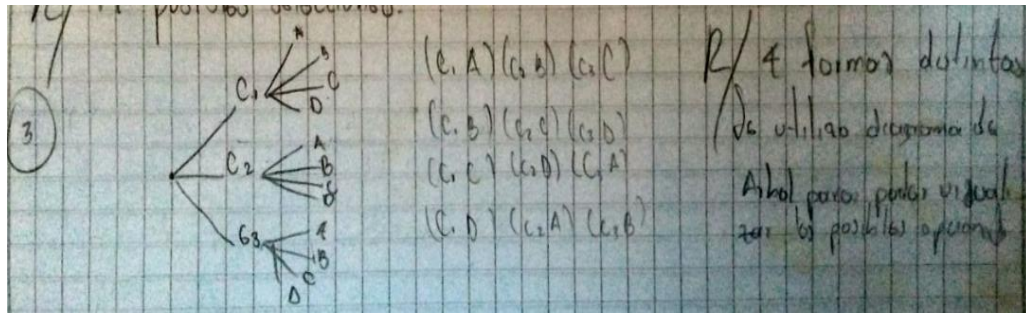 R/ 12 posibles selecciones.
3
C1 A B C D
C2 A B C D
C3 A B C D
(C1 A) (C2 B) (C3 C)
(C1 B) (C2 C) (C3 D)
(C1 C) (C2 D) (C3 A)
(C1 D) (C2 A) (C3 B)
R/ 4 formas distintas
Se utilizo diagrama de
Arbol para poder visuali
zar las posibles opciones